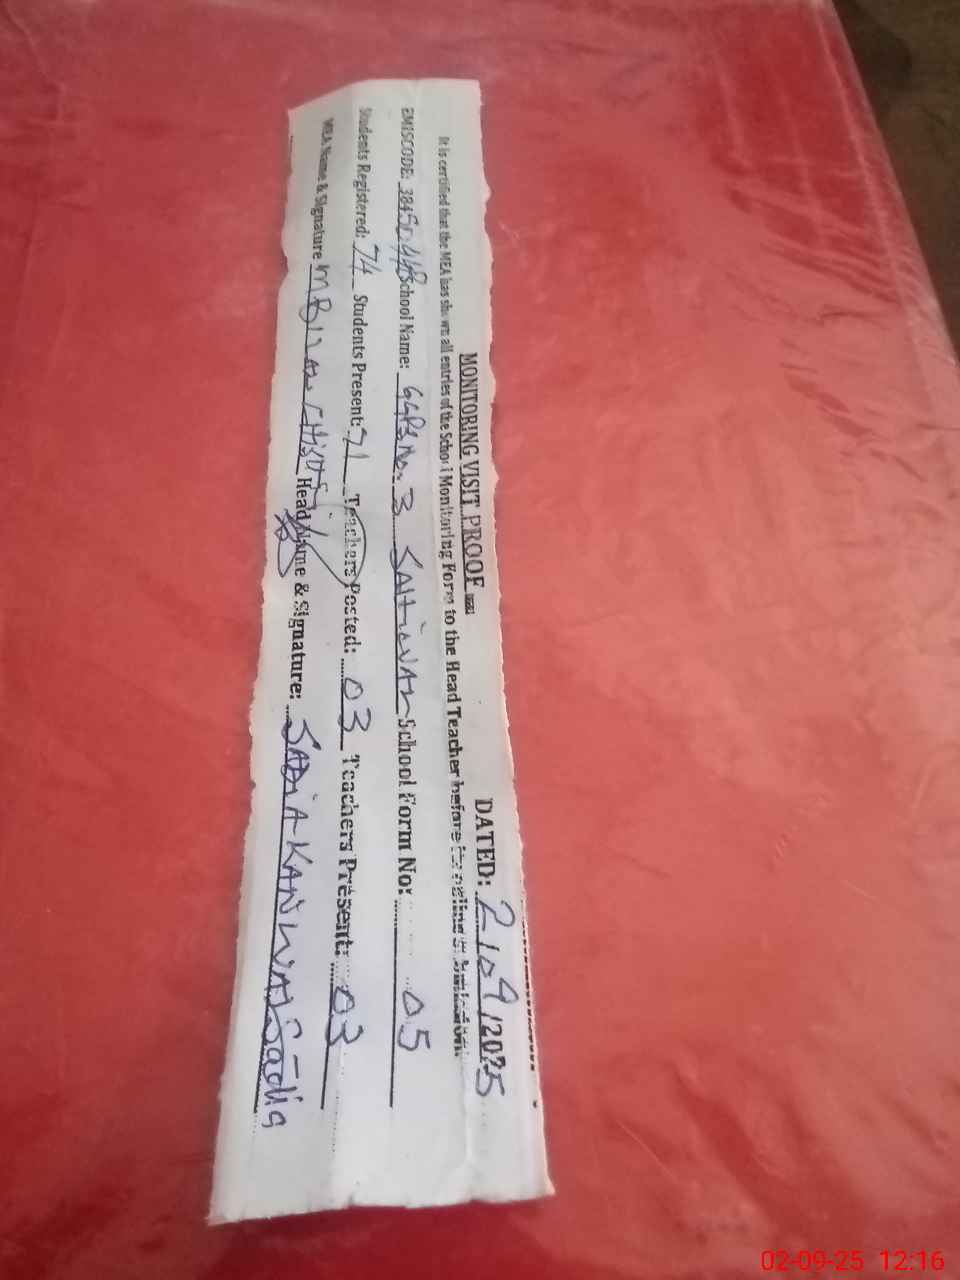 MONITORING VISIT PROOF DATED: 2/09/2025
It is certified that the MEA has shown all entries of the School Monitoring Form to the Head Teacher before its online submission.
EMISCODE: 38450448 School Name: GGPS No. 3 SAHIWAL School Form No: 05
Students Registered: 74 Students Present: 71 Teachers Posted: 03 Teachers Present: 03
MEA Name & Signature M BILAL CHISHTI Head Name & Signature: SADIA KANWAL Sadia
02-09-25 12:16